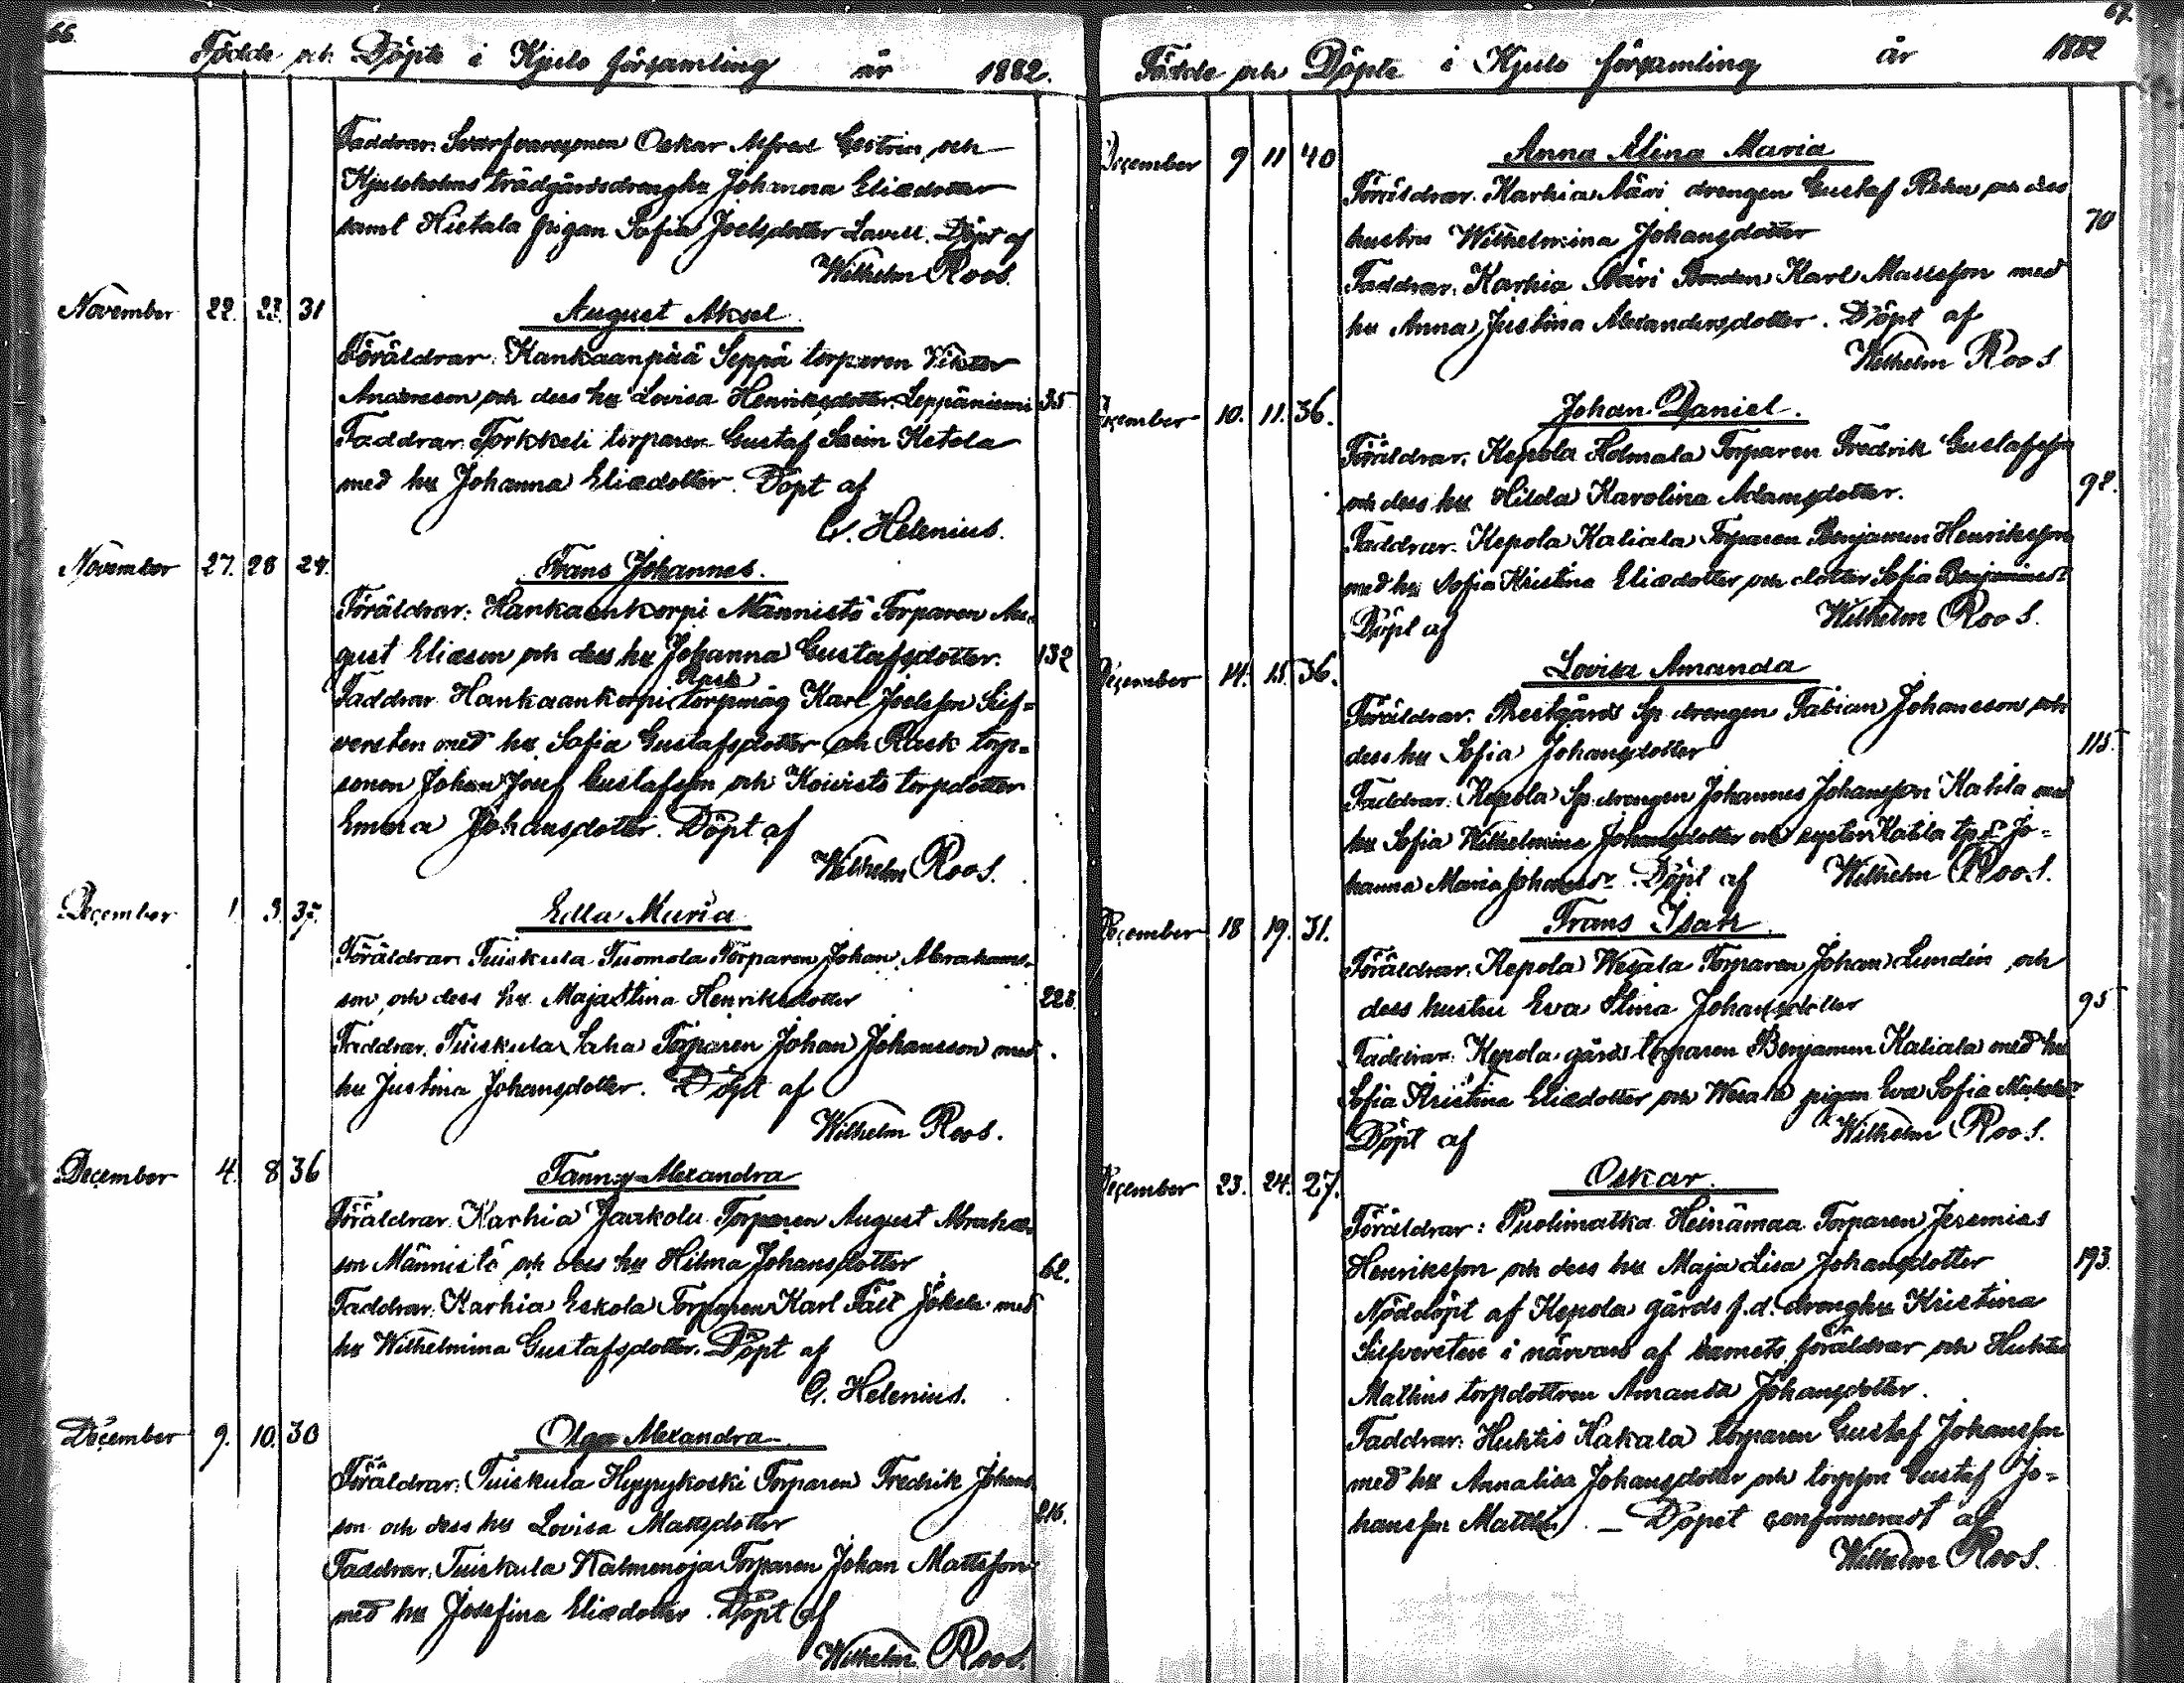 66.
Födde och Döpte i Kjulo församling år 1882.
Faddrar: Oskar Alfred Gestrin och
Kjuloholms trädgårdsdrenghu Johanna Eliædotter
samt Hietala pigan Sofia Joelsdotter Lavell. Döpt af
Wilhelm Roos.
November 22. 23. 31 August Aksel.
Föräldrar: Kankaanpää Seppä torparen Viktor
Andersson och dess hu Lovisa Henriksdotter Leppäniemi 35
Faddrar: Torkkeli torparen Gustaf Ketola
med hu Johanna Eliædotter. Döpt af
G. Helenius.
November 27. 28 24. Frans Johannes.
Föräldrar: Hankaankorpi Männistö Torparen Au-
gust Eliæson och dess hu Johanna Gustafsdotter. 132
Rask
Faddrar Hankaankorpi torpmåg Karl Joelsson Silf-
versten med hu Sofia Gustafsdotter och Rask torp-
sonen Johan Josef Gustafsson och Koivisto torpdotter
Emma Johansdotter. Döpt af
Wilhelm Roos.
December 1 3. 37. Edla Maria
Föräldrar Tuiskula Tuomola Torparen Johan Abrahams-
son och dess hu Majastina Henriksdotter 223
Faddrar. Tuiskula Saha Torparen Johan Johansson med
hu Justina Johansdotter. Döpt af
Wilhelm Roos.
December 4. 8 36 Fanny Alexandra
Föräldrar Karhia Jaakola Torparen August Abraha-
son Männistö och dess hu Hilma Johansdotter 62.
Faddrar. Karhia Eskola Torparen Karl Fält Jokela med
hu Wilhelmina Gustafsdotter. Döpt af
G. Helenius.
December 9. 10. 30 Olga Alexandra
Föräldrar: Tuiskula Hyypykoski Torparen Fredrik Johans-
son och dess hu Lovisa Mattsdotter 216.
Faddrar: Tuiskula Kalmenoja Torparen Johan Mattsson
med hu Josefina Eliædotter. Döpt af
Wilhelm Roos.
67.
Födde och Döpte i Kjulo församling år 1882
December 9 11 40 Anna Alina Maria
Föräldrar. Karhia Näri drengen Gustaf och dess
hustru Wilhelmina Johansdotter 70
Faddrar: Karhia Näri Bonden Karl Matsson med
hu Anna Justina Alexandersdotter. Döpt af
Wilhelm Roos
December 10. 11. 36. Johan Daniel.
Föräldrar. Kepola Holmala Torparen Fredrik Gustafsson
och dess hu Hilda Karolina Adamsdotter. 98.
Faddrar. Kepola Kaliala Torparen Benjamin Henriksson
med hu Sofia Kristina Eliædotter och dotter Sofia Benjaminsdr
Döpt af Wilhelm Roos.
December 14. 15. 36. Lovisa Amanda
Föräldrar. Prestgårds Sp. drengen Fabian Johansson och
dess hu Sofia Johansdotter 115.
Faddrar. Kepola Sp. drengen Johannes Johansson Katila med
hu Sofia Wilhelmina Johansdotter och syster Katila Jo-
hanna Maria Johansdr. Döpt af Wilhelm Roos.
December 18 19. 31. Frans Isak
Föräldrar: Kepola Wesala Torparen Johan Lundin och
dess hustru Eva Stina Johansdotter 95
Faddrar: Kepola gårds torparen Benjamin Kaliala med hu
Sofia Kristina Eliædotter och Wesala pigan Eva Sofia
Döpt af Wilhelm Roos.
December 23. 24. 27. Oskar.
Föräldrar: Puolimatka Heinämaa Torparen Jeremias
Henriksson och dess hu Maja Lisa Johansdotter 193.
Nöddöpt af Kepola gårds f.d. drenghu Kristina
Silfversten i närvaro af barnets föräldrar och Huhtis
Mattus torpdottren Amanda Johansdotter.
Faddrar: Huhtis Kakala torparen Gustaf Johansson
med hu Annalisa Johansdotter och torpson Gustaf Jo-
hansson . — Döpet confirmeradt af
Wilhelm Roos.